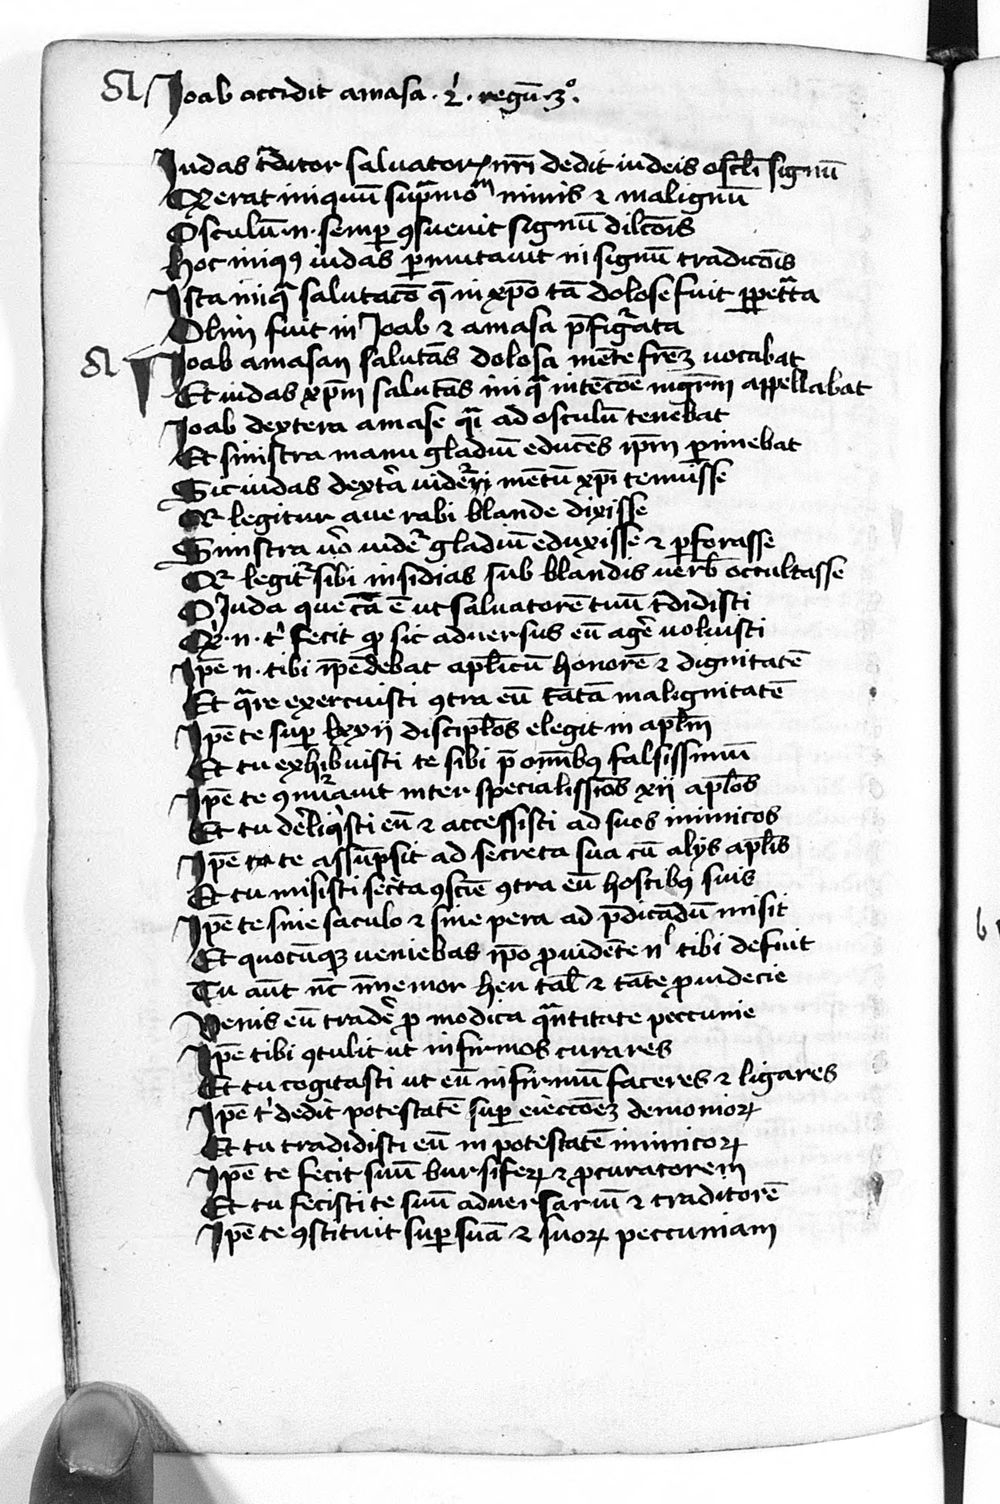 a Joab occidit amasa . 2ͥ . regū . 3º .
Judas t̉ditor saluatorꝭ nr̄i dedit iudeis oscl̄i signū
Qꝫ erat iniquū sup̄moᵐ nimis ⁊ malignū
Osculū .n. semꝑ ꝯsueuit signū dilc̄ois
Hoc iniqꝰ iudas ꝑmutauit in signū tradic̄ois
Ista iniqᵃ salutac̄o q̄ in xp̄o tā dolose fuit ꝑpetᵃta
Olim fuit in Joab ⁊ amasa p̄figᵃrata
a Joab amasan salutās dolosa mēte fr̄eꝫ vocabat
Et iudas xp̄m salutās iniqᵃ intēcōe mgr̄m appellabat
Joab dextera amase qᵃi ad osculū tenebat
Et sinistra manu gladiū educēs ip̄m ꝑimebat
Sic iudas dext̉a videt̉ mētū xp̄i tenuisse
Qꝛ legitur aue rabi blande dixisse
Sinistra ū̊o videt̉ gladiū eduxisse ⁊ ꝑforasse
Qꝛ legit̉ sibi insidias sub blandis verb̄ occultasse
O Juda que cā ē ut saluatorē tuū t̉didisti
Qͥ .n. tͥ fecit ꝙ sic aduersus eū ag̉e voluisti
Ip̄e .n. tibi īpēdebat apl̄icū honorē ⁊ dignitatē
Et qᵃre exercuisti ꝯtra eū tātā malignitatē
Ip̄e te suꝑ lxxij discipl̄os elegit in apl̄m
Et tu exhibuisti te sibi p̄ om̄ibꝰ falsissimū
Ip̄e te ꝯnūauit inter specialissīos xij apl̄os
Et tu dereliqͥsti eū ⁊ accessisti ad suos inimicos
Ip̄e te assūpsit ad secreta sua cū alijs apl̄is
Et tu misisti sec̉ta ꝯsciē ꝯtra eū hostibꝰ suis
Ip̄e te sine saculo ⁊ sine pera ad p̄dicādū misit
Et quocūqꝫ veniebas ip̄o ꝓuidēte nˡ tibi defuit
Tu aūt nc̄ īmemor heu tal̄ ⁊ tāte ꝓuidecie
Venis eū trad̉e ꝓ modica qᵃntitate peccunie
Ip̄e tibi ꝯtulit ut infirmos curares
Et tu cogitasti ut eū infirmū faceres ⁊ ligares
Ip̄e tͥ dedit potestatē suꝑ eiecc̄oeꝫ demonioꝝ
Et tu tradidisti eū in potestatē inimicoꝝ
Ip̄e te fecit suū bursiferꝝ ⁊ ꝓcuratorem
Et tu fecisti te suū aduersariū ⁊ traditorē
Ip̄e te ꝯstituit suꝑ suā ⁊ suoꝝ peccuniam